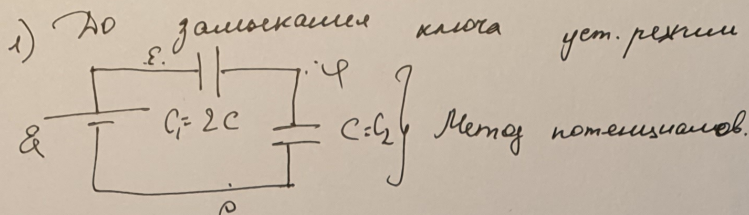 1) До замыкания ключа уст. режим
ε. φ
ε C₁=2C C=C₂ Метод потенциалов.
0